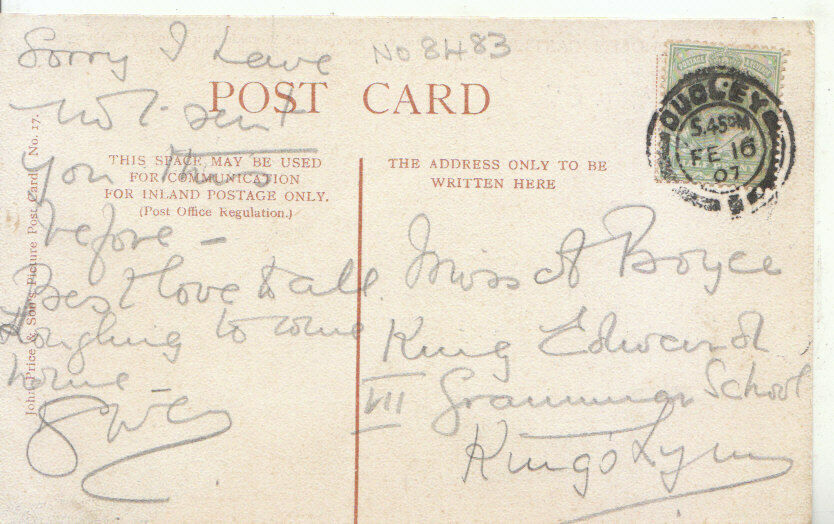 Sorry I have
No 8483
not sent
you this
before -
Best love to all.
Longing to come
home -
POST CARD
THIS SPACE MAY BE USED
FOR COMMUNICATION
FOR INLAND POSTAGE ONLY.
(Post Office Regulation.)
THE ADDRESS ONLY TO BE
WRITTEN HERE
John Price & Son's Picture Post Card, No. 17.
DUDLEY
5.45PM
FE 16
07
POSTAGE
Miss A Boyce
King Edward
VII Grammar School
King's Lynn